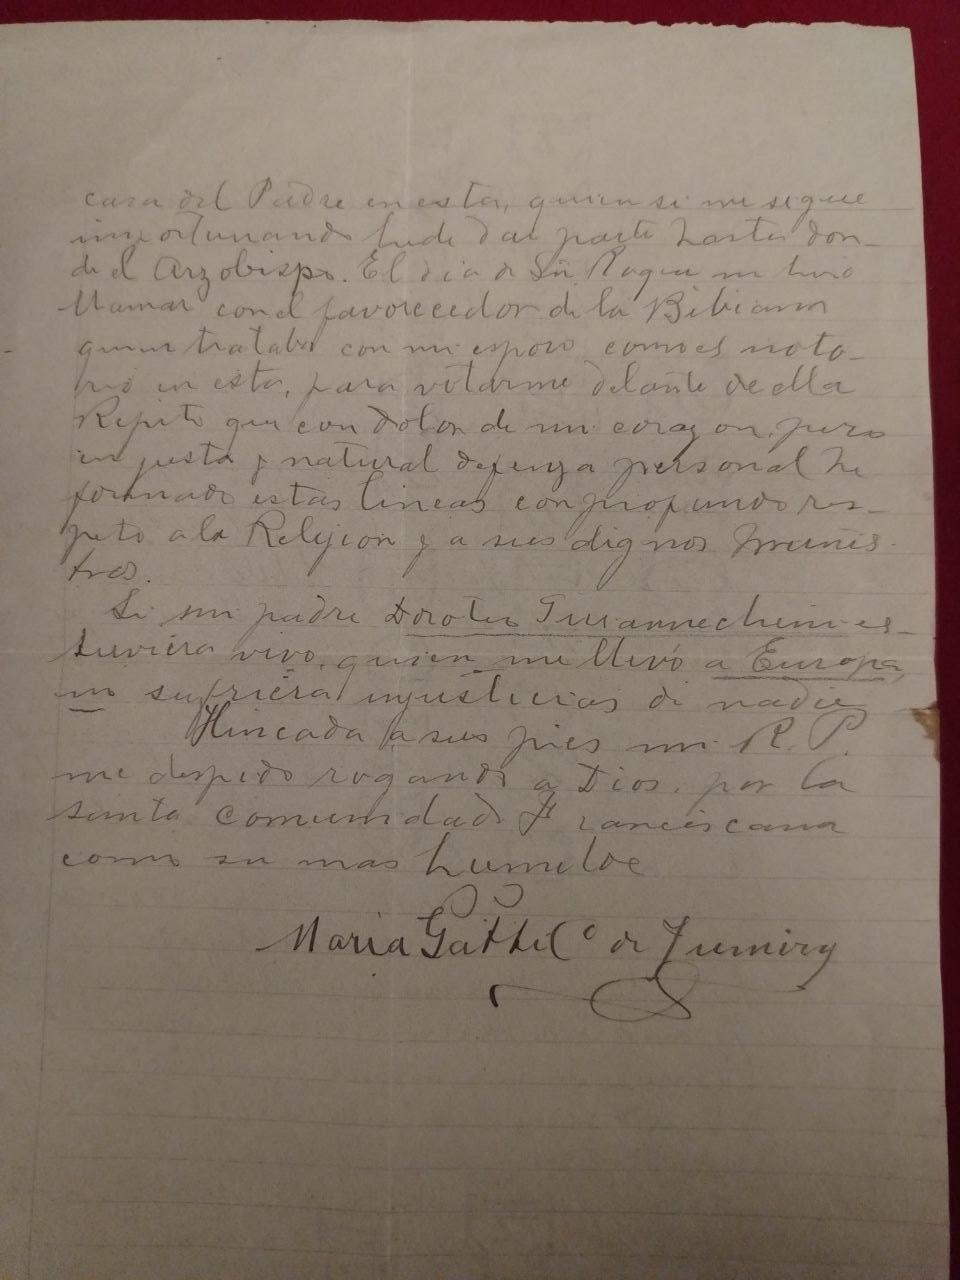 casa del Padre en esta, quien si me sigue
importunando hede dar parte hasta don-
de el Arzobispo. El dia de Sn. Roque me hiso
llamar con el favoreecedor de la Bibiana
quien trataba con mi esposo como es noto-
rio en esta, para votarme delante de ella
Repito que con dolor de mi corazon, pero
en justa y natural defenza personal he
formado estas lineas con profundo res-
peto a la Relijion y a sus dignos Minis-
tros.
Si mi padre Doroteo es-
tuviera vivo, quien me llevó a Europa,
no sufriera injusticias de nadie
Hincada a sus pies mi R. P.
me despido rogando a Dios, por la
santa comunidad Franciscana
como su mas humilde
Maria de